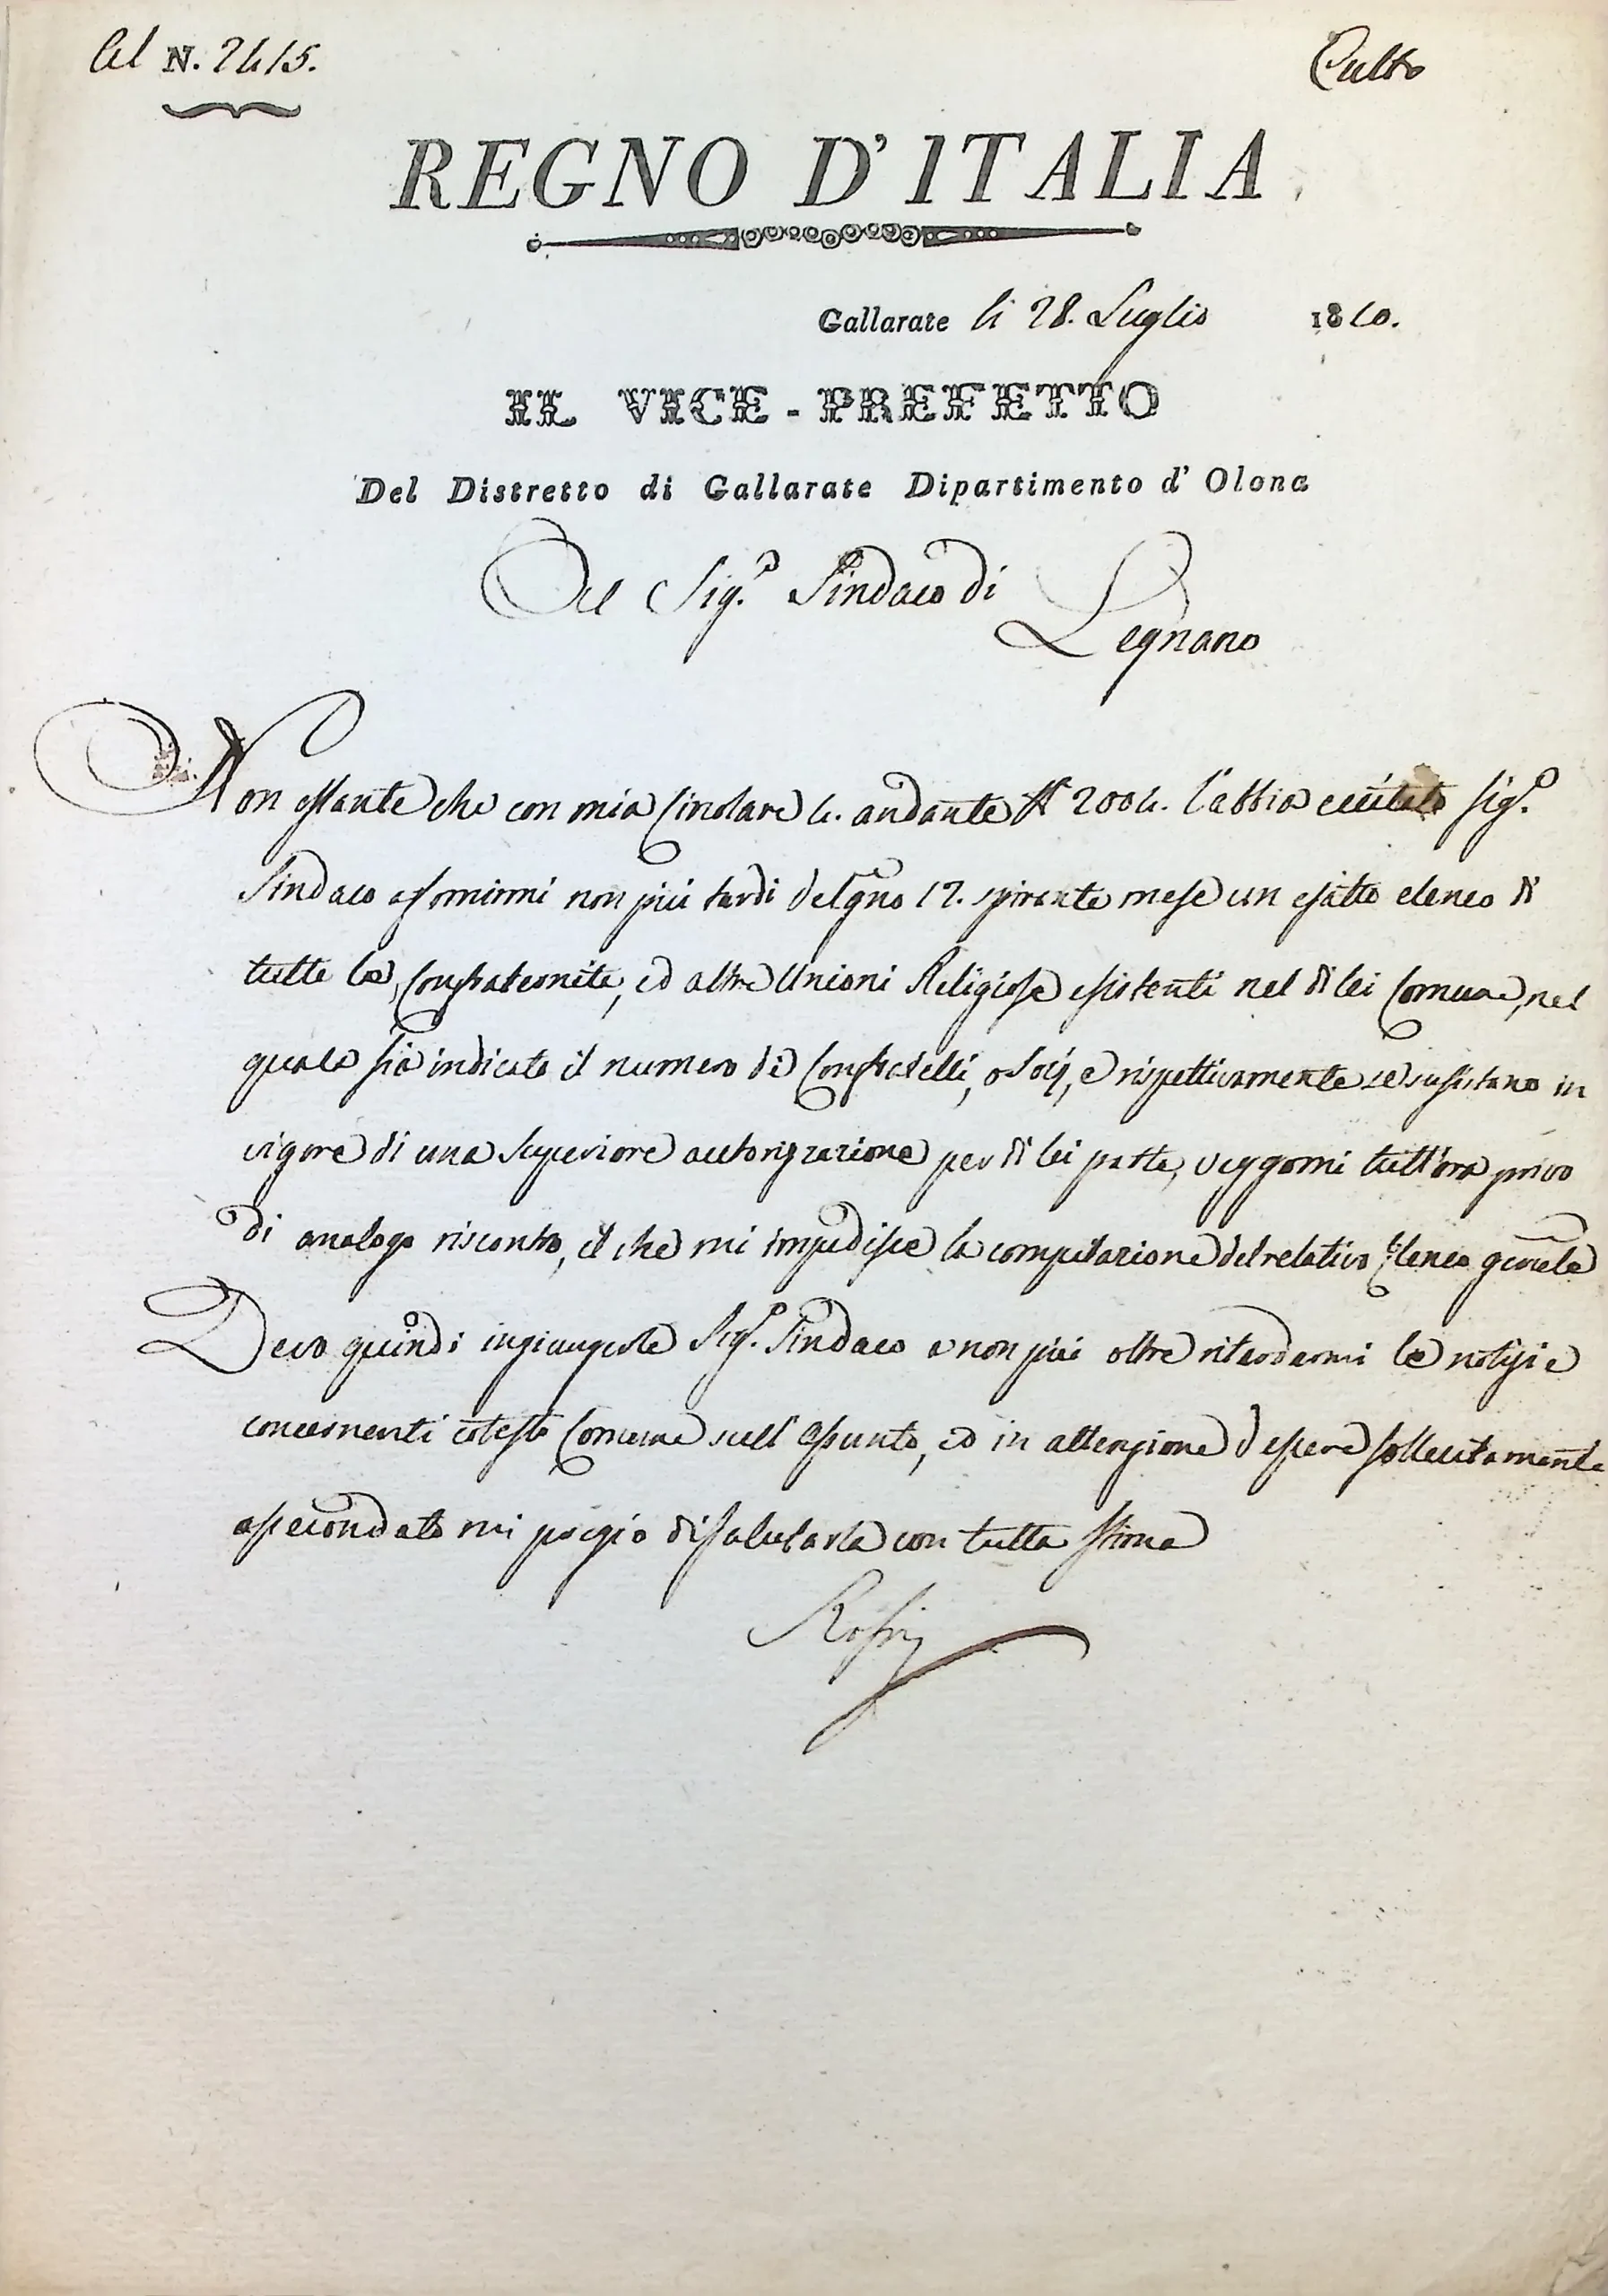 Al N. 2415.
Culto
REGNO D'ITALIA
Gallarate li 28. Luglio 1810.
IL VICE-PREFETTO
Del Distretto di Gallarate Dipartimento d'Olona
Al Sig.r Sindaco di
Legnano
Non ostante che con mia Circolare 4. andante N.° 2004. l'abbia eccitato Sig.r
Sindaco a fornirmi non più tardi del gno 17. spirante mese un esatto elenco di
tutte le Confraternite, ed altre Unioni Religiose esistenti nel di lei Comune, nel
quale sia indicato il numero de Confratelli, o Socj, e rispettivamente se sussistano in
vigore di una Superiore autorizzazione per di lei parte, veggomi tutt'ora privo
di analogo riscontro, il che mi impedisce la compilazione del relativo Elenco gnrale
Devo quindi ingiungerle Sig.r Sindaco a non più oltre ritardarmi le notizie
concernenti cotesto Comune sull'assunto, ed in attenzione d'essere sollecitamente
assecondato mi pregio di salutarla con tutta stima